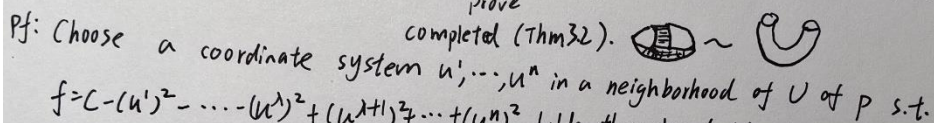 prove
completed (Thm3.2).
Pf: Choose a coordinate system u¹,⋯,uⁿ in a neighborhood of U of p s.t.
f=C-(u¹)²-⋯-(u^λ)²+(u^λ+1)²+⋯+(uⁿ)²